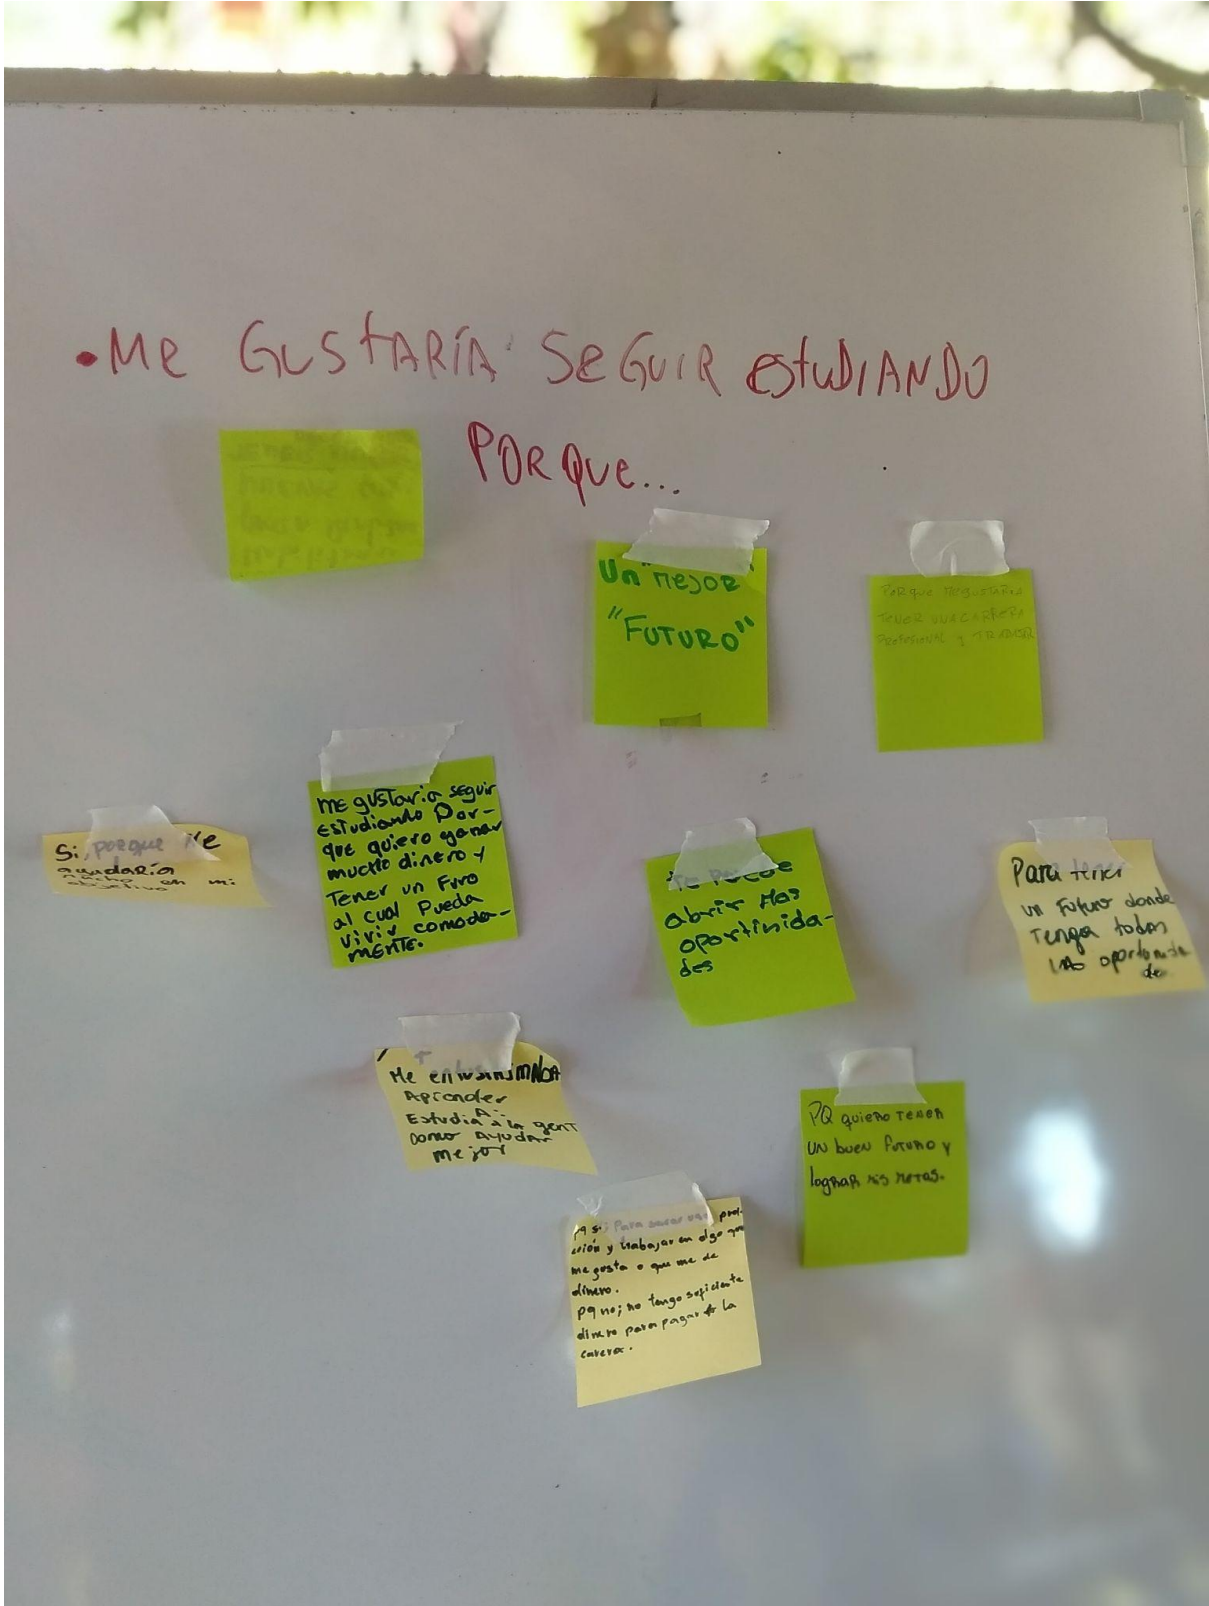 • Me GUSTARÍA SEGUIR ESTUDIANDO
PORQUE...
Un "MEJOR"
"FUTURO"
PORQUE ME GUSTARIA
TENER UNA CARRERA
PROFESIONAL Y TRABAJAR
ME gustaria seguir
Estudiando Por-
que quiero ganar
mucho dinero y
Tener un Furo
al cual Pueda
vivir comoda-
MENTE.
Si, porque Me
ayudaría
mucho en mi
objetivo
Te PUEDE
abrir Mas
oportinida-
des
Para tener
un Futuro donde
Tenga todas
las oportunida
de
Aprender
Estudia a la gent
como Ayudar
mejor
PQ quiero TENER
UN buen FUTURO y
lograR mis metas.
pq si; Para sacar una prof-
esión y trabajar en algo que
me gusta o que me de
dinero.
pq no; no tengo suficiente
dinero para pagar la
carerra.